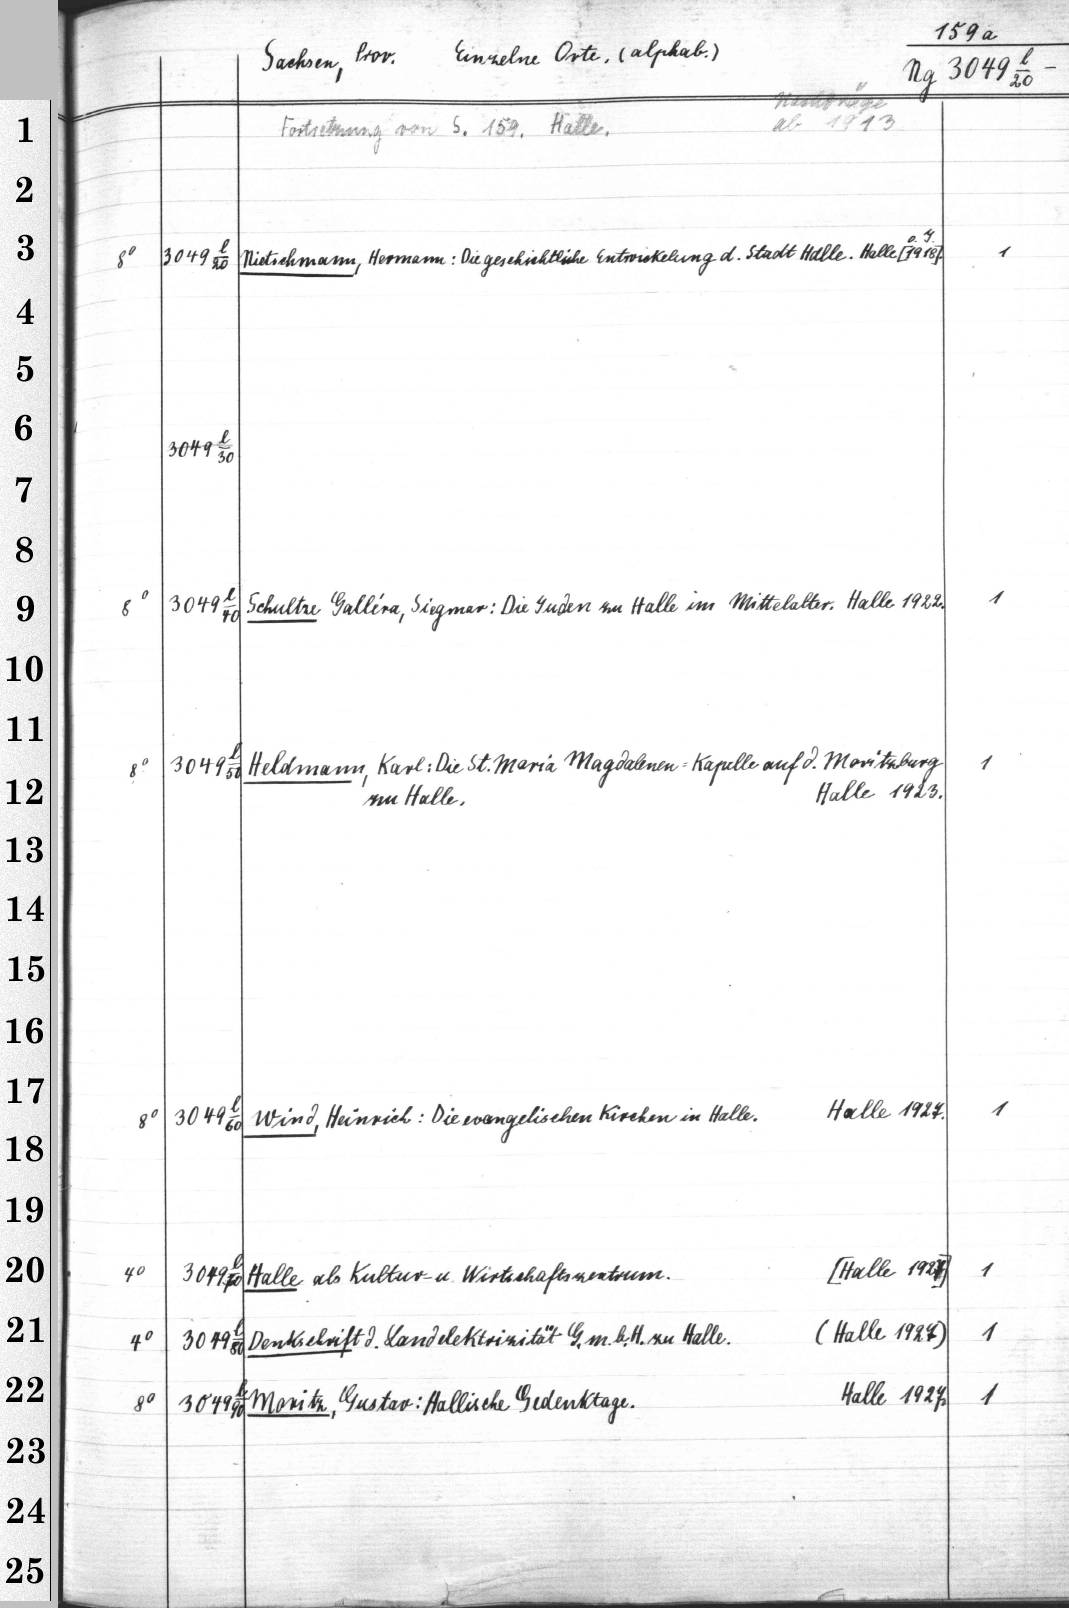 159a
Sachsen, Prov. Einzelne Orte. (alphab.) Ng 3049 l/20 -
Nachträge
Fortsetzung von S. 159. Halle. ab 1913
1
2
3 8° 3049 l/20 Nietschmann, Hermann: Die geschichtliche Entwickelung d. Stadt Halle. Halle [o. J. 1918]. 1
4
5
6 3049 l/30
7
8
9 8° 3049 l/40 Schultze Galléra, Siegmar: Die Juden zu Halle im Mittelalter. Halle 1922. 1
10
11 8° 3049 l/50 Heldmann, Karl: Die St. Maria Magdalenen-Kapelle auf d. Moritzburg 1
12 zu Halle. Halle 1923.
13
14
15
16
17 8° 3049 l/60 Wind, Heinrich: Die evangelischen Kirchen in Halle. Halle 1927. 1
18
19
20 4° 3049 l/70 Halle als Kultur- u. Wirtschaftszentrum. [Halle 1927] 1
21 4° 3049 l/80 Denkschrift d. Landelektrizität G.m.b.H. zu Halle. (Halle 1927) 1
22 8° 3049 l/90 Moritz, Gustav: Hallische Gedenktage. Halle 1927. 1
23
24
25